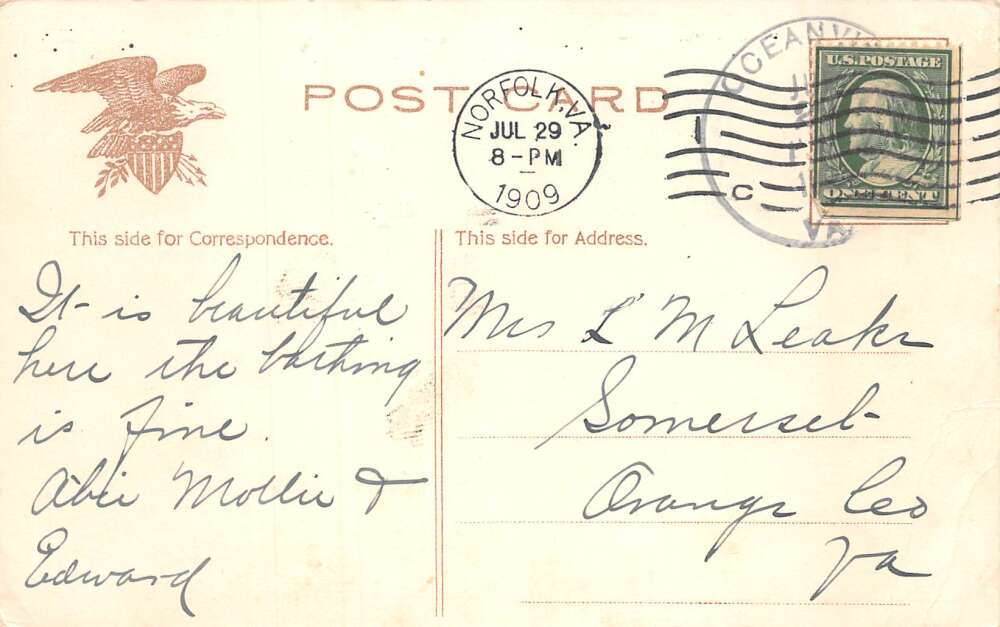 POST CARD
NORFOLK, VA.
JUL 29
8-PM
1909
OCEANVI
VA
C
1
U.S. POSTAGE
ONE CENT
This side for Correspondence.
It is beautiful
here the bathing
is fine.
Abie Mollie &
Edward
This side for Address.
Mrs L M Leake
Somerset
Orange Co
Va